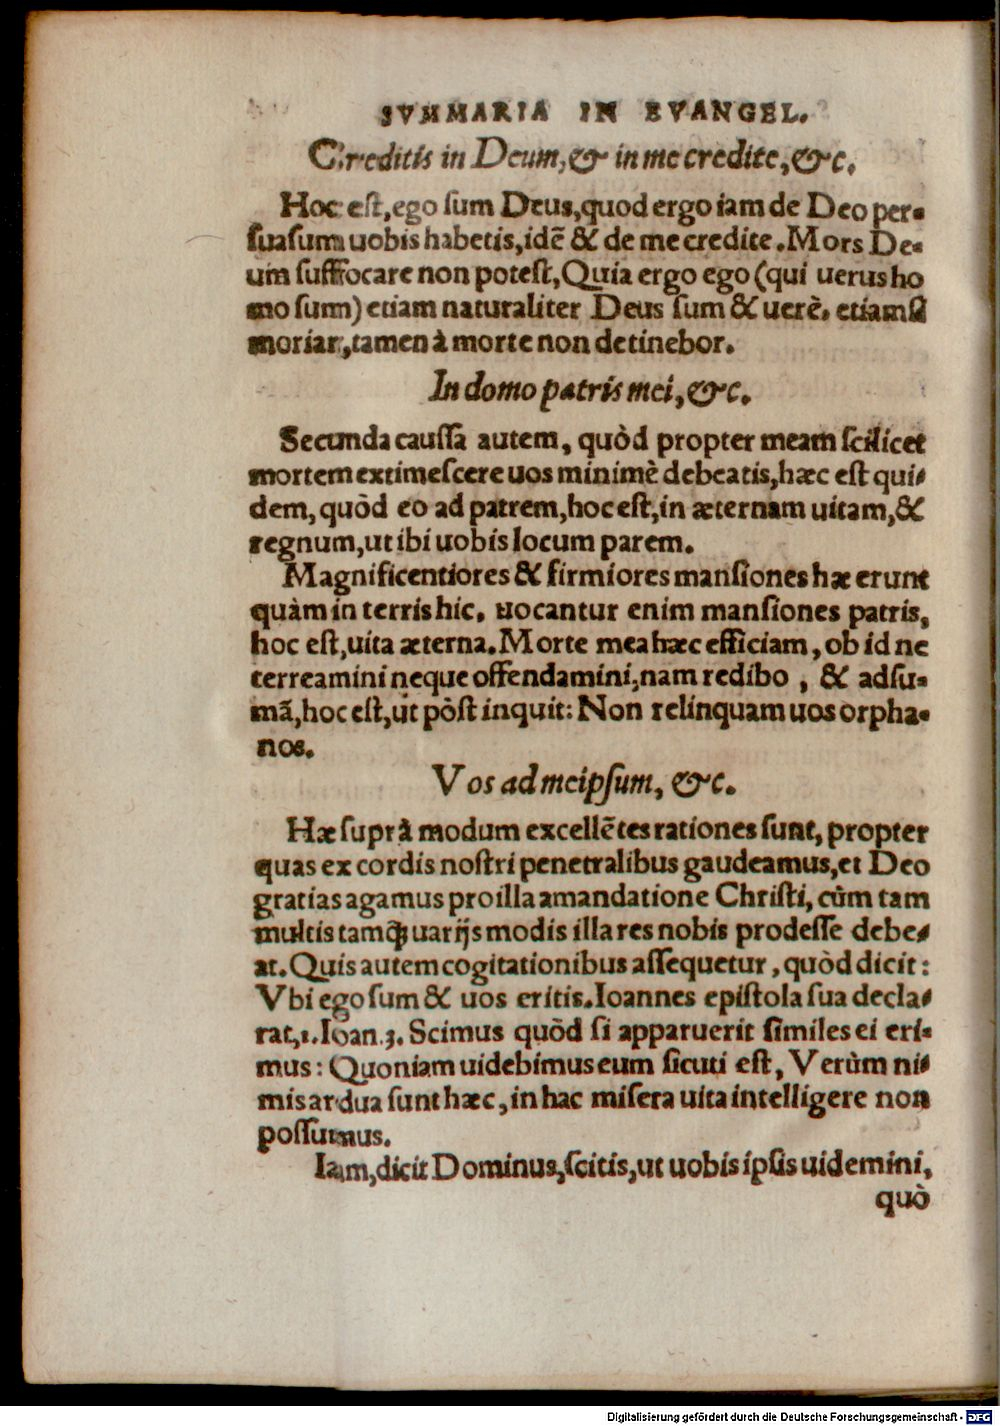 SVMMARIA IN EVANGEL.
Creditis in Deum, & in me credite, &c.
Hoc est, ego sum Deus, quod ergo iam de Deo per-
suasum uobis habetis, idẽ & de me credite. Mors De-
um suffocare non potest, Quia ergo ego (qui uerus ho
mo sum) etiam naturaliter Deus sum & uerè. etiamsi
moriar, tamen à morte non detinebor.
In domo patris mei, &c.
Secunda caussa autem, quòd propter meam scilicet
mortem extimescere uos minimè debeatis, hæc est qui-
dem, quòd eo ad patrem, hoc est, in æternam uitam, &
regnum, ut ibi uobis locum parem.
Magnificentiores & firmiores mansiones hæ erunt
quàm in terris hic. uocantur enim mansiones patris,
hoc est, uita æterna. Morte mea hæc efficiam, ob id ne
terreamini neque offendamini, nam redibo, & adsu-
mã, hoc est, ut pòst inquit: Non relinquam uos orpha-
nos.
Vos ad meipsum, &c.
Hæ suprà modum excellẽtes rationes sunt, propter
quas ex cordis nostri penetralibus gaudeamus, et Deo
gratias agamus pro illa amandatione Christi, cùm tam
multis tamq̃ uarijs modis illa res nobis prodesse debe-
at. Quis autem cogitationibus assequetur, quòd dicit:
Vbi ego sum & uos eritis. Ioannes epistola sua decla-
rat, 1. Ioan. 3. Scimus quòd si apparuerit similes ei eri-
mus: Quoniam uidebimus eum sicuti est, Verùm ni-
mis ardua sunt hæc, in hac misera uita intelligere non
possumus.
Iam, dicit Dominus, scitis, ut uobis ipsis uidemini,
quò
Digitalisierung gefördert durch die Deutsche Forschungsgemeinschaft - DFG